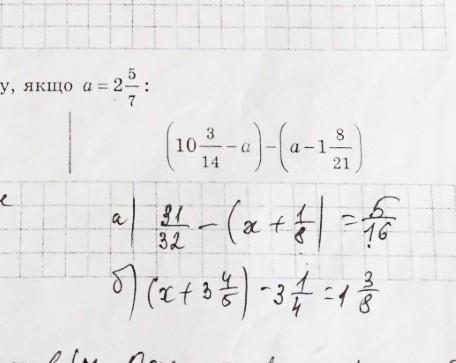 у, якщо a = 2 5/7 :
(10 3/14 - a) - (a - 1 8/21)
е
а) 31/32 - (x + 1/8) = 5/16
б) (x + 3 4/5) - 3 1/4 = 1 3/8